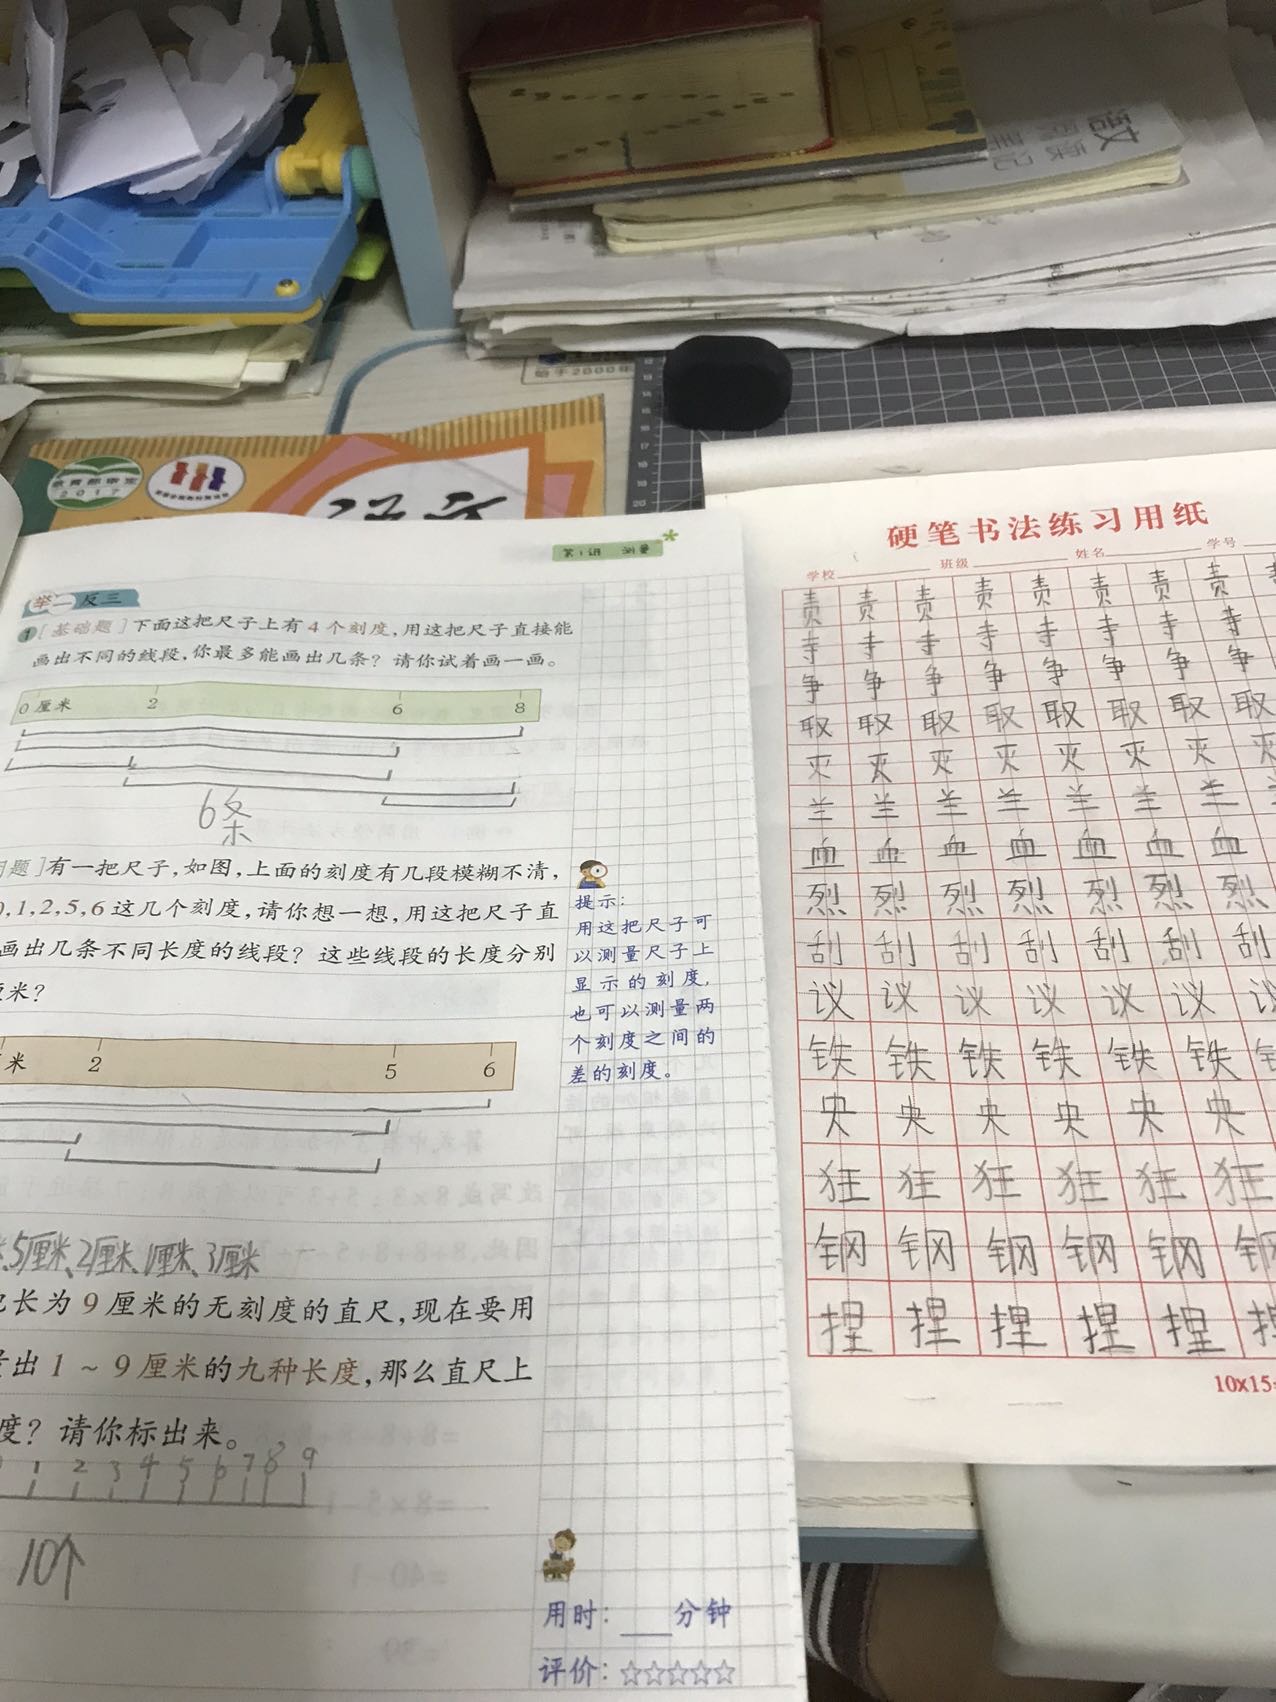 教育部审定
2017
始于2000年
第1讲 测量
举一反三
1[基础题]下面这把尺子上有4个刻度,用这把尺子直接能
画出不同的线段,你最多能画出几条?请你试着画一画。
0厘米 2 6 8
6条
题]有一把尺子,如图,上面的刻度有几段模糊不清,
0,1,2,5,6这几个刻度,请你想一想,用这把尺子直
画出几条不同长度的线段?这些线段的长度分别
厘米?
米 2 5 6
5厘米、2厘米、1厘米、3厘米
把长为9厘米的无刻度的直尺,现在要用
量出1~9厘米的九种长度,那么直尺上
度?请你标出来。
1 2 3 4 5 6 7 8 9
10个
提示:
用这把尺子可
以测量尺子上
显示的刻度,
也可以测量两
个刻度之间的
差的刻度。
用时: 分钟
评价:☆☆☆☆☆
硬笔书法练习用纸
学校 班级 姓名 学号
责 责 责 责 责 责 责
寺 寺 寺 寺 寺 寺 寺
争 争 争 争 争 争 争
取 取 取 取 取 取 取
灭 灭 灭 灭 灭 灭 灭
羊 羊 羊 羊 羊 羊 羊
血 血 血 血 血 血 血
烈 烈 烈 烈 烈 烈 烈
刮 刮 刮 刮 刮 刮 刮
议 议 议 议 议 议 议
铁 铁 铁 铁 铁 铁 铁
央 央 央 央 央 央
狂 狂 狂 狂 狂 狂
钢 钢 钢 钢 钢 钢
捏 捏 捏 捏 捏 捏
10x15